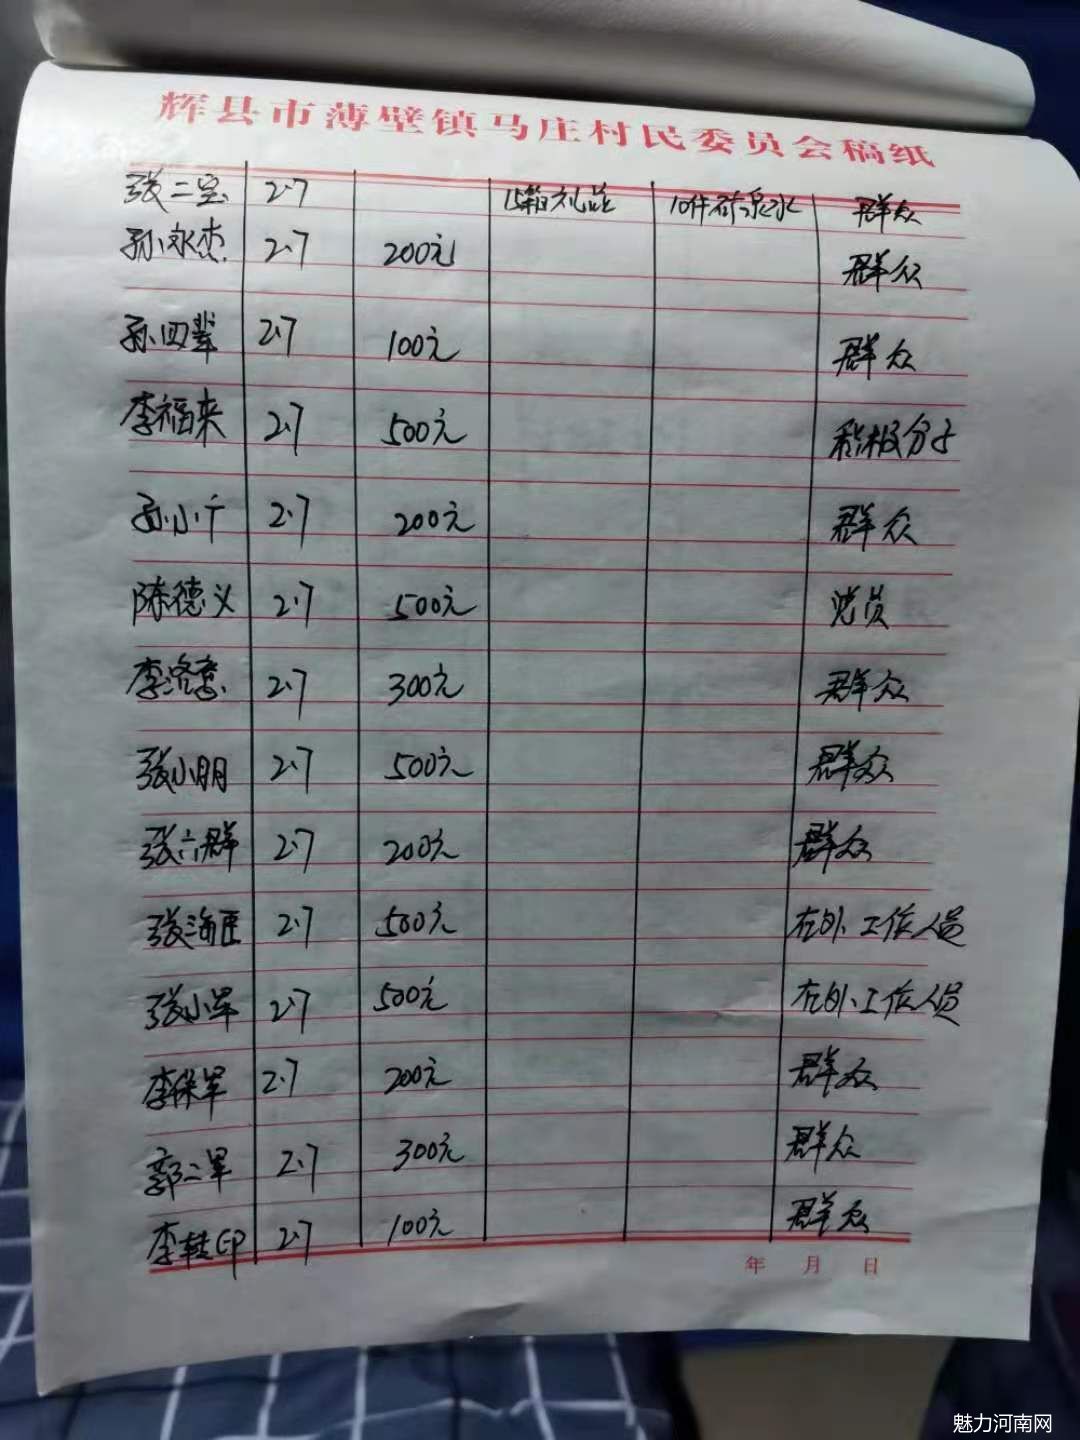 辉县市薄壁镇马庄村民委员会稿纸
张二宝 2.7 15箱礼品 10件矿泉水 群众
孙永杰 2.7 200元 群众
孙四辈 2.7 100元 群众
李福来 2.7 500元 积极分子
孙小千 2.7 200元 群众
陈德义 2.7 500元 党员
李洛 2.7 300元 群众
张小朋 2.7 500元 群众
张六群 2.7 200元 群众
张海臣 2.7 500元 在外工作人员
张小军 2.7 500元 在外工作人员
李保军 2.7 200元 群众
郭二军 2.7 300元 群众
李桂印 2.7 100元 群众
年 月 日
魅力河南网